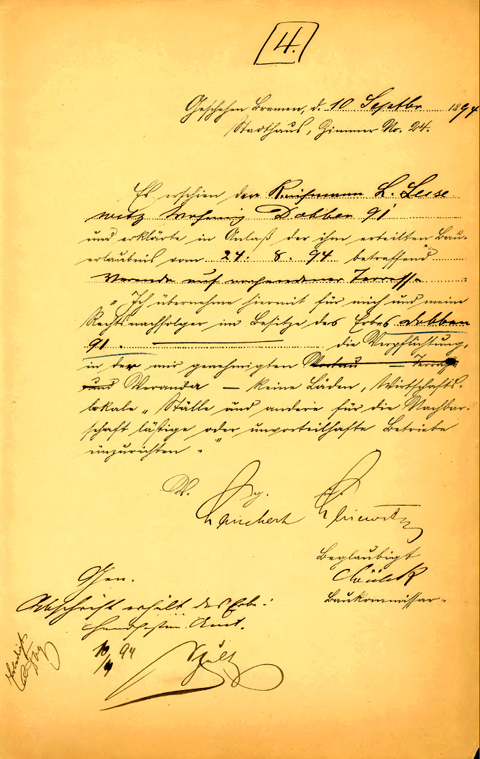 4.
Geschehen Bremen, d. 10 Septbr 1894
Stadthaus, Zimmer No. 24.
Es erschien der Kaufmann L. Leise
witz wohnhaft Dobben 91
und erklärte in Anlaß der ihm erteilten Bau-
erlaubnis vom 24. 8. 94 betreffend
Veranda auf vorhandener Terrasse
„Ich übernehme hiermit für mich und mein
Rechtsnachfolger im Besitze des Erbes Dobben
91. die Verpflichtung,
in der mir genehmigten
Veranda — keine Läden, Wirtschafts-
lokale, Ställe und andere für die Nachbar-
schaft lästige oder unvorteilhafte Betriebe
einzurichten"
Beglaubigt
Baukommissar.
Gen.
Abschrift erhält das Erbe-
Handfesten Amt.
94